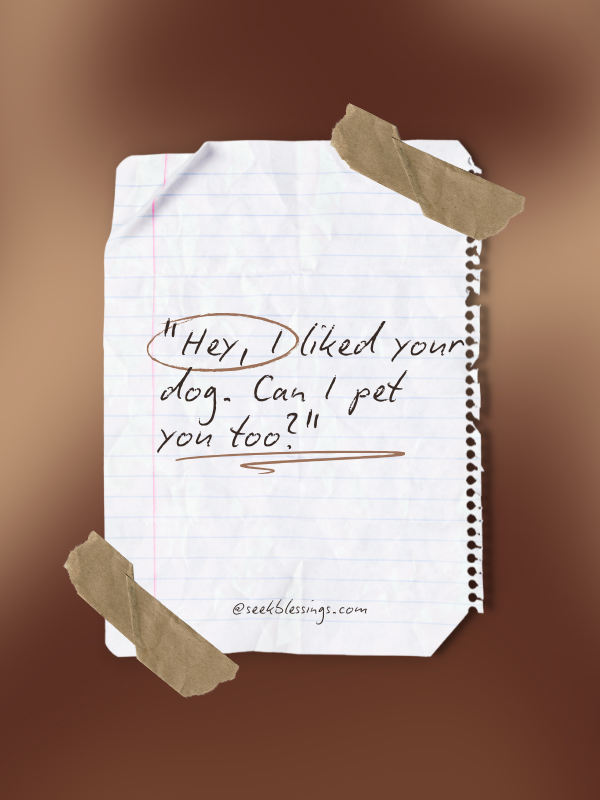 "Hey, I liked your
dog. Can I pet
you too?"
@seekblessings.com